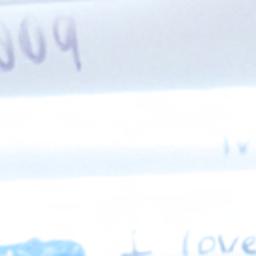 009
I love